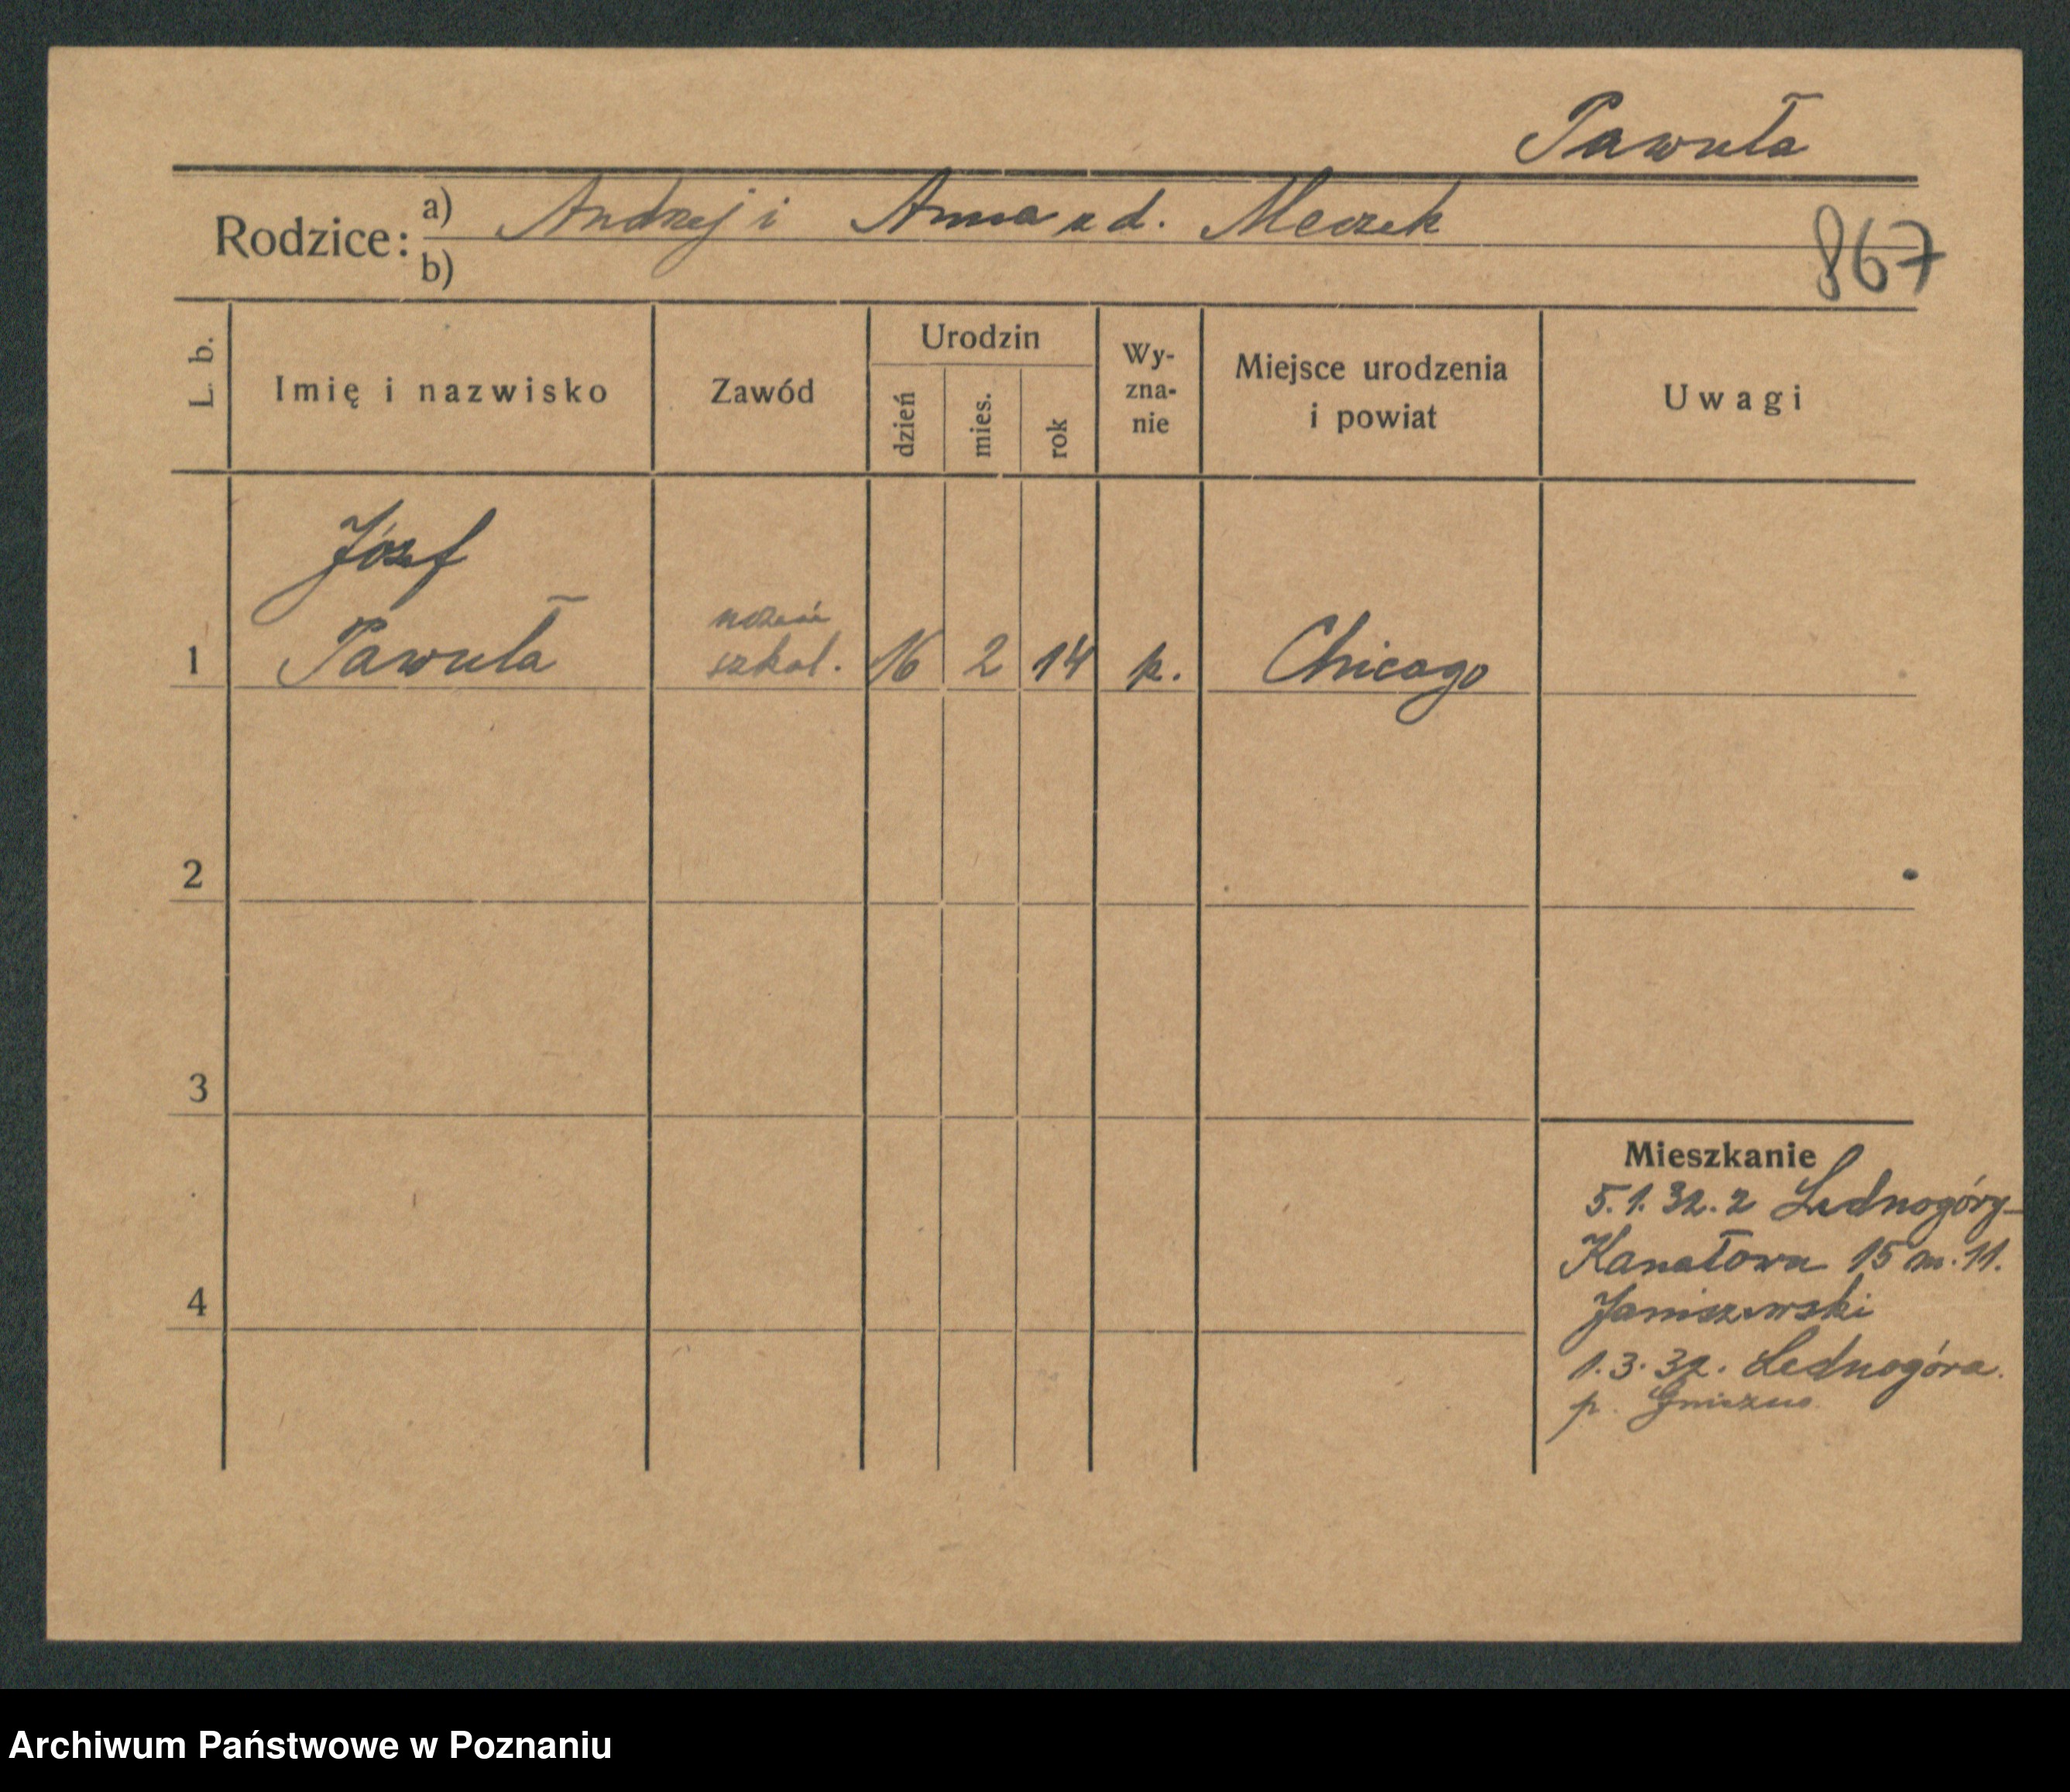 Pawuła
Rodzice: a) Andrzej i Anna z d. Meczek
b)
867
L. b.
Imię i nazwisko
Zawód
Urodzin
dzień
mies.
rok
Wy-
zna-
nie
Miejsce urodzenia
i powiat
Uwagi
Józef
1 Pawuła
uczeń
szkol.
16 2 14 k. Chicago
2
3
4
Mieszkanie
5.1.32. z Lednogóry
Kanałowa 15 m. 11.
Janiszewski
1.3.32. Lednogóra.
p. Gniezno
Archiwum Państwowe w Poznaniu